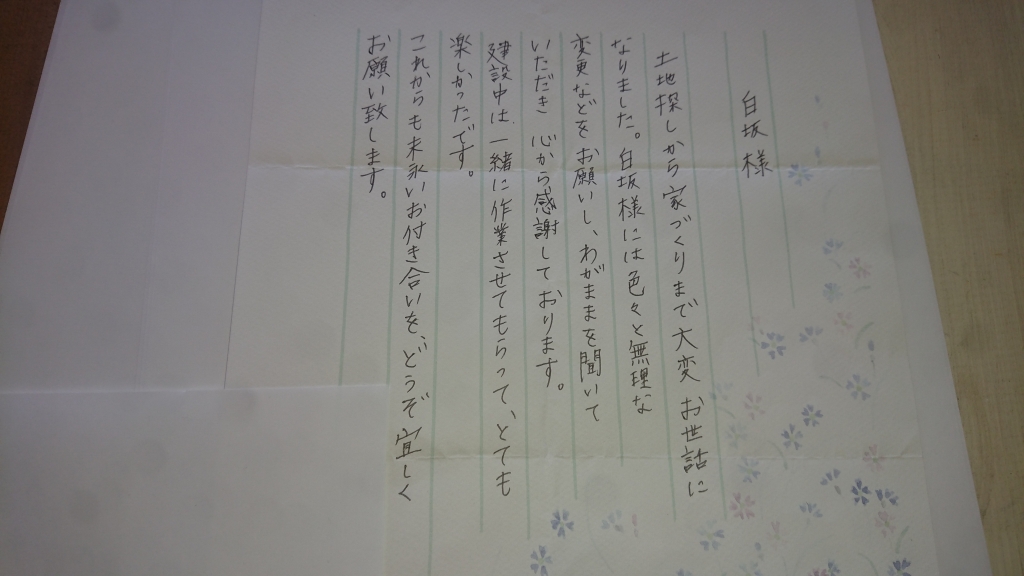 白坂様
土地探しから家づくりまで大変 お世話に
なりました。白坂様には色々と無理な
変更などをお願いし、わがままを聞いて
いただき 心から感謝しております。
建設中は一緒に作業させてもらって、とても
楽しかったです。
これからも末永いお付き合いを、どうぞ宜しく
お願い致します。